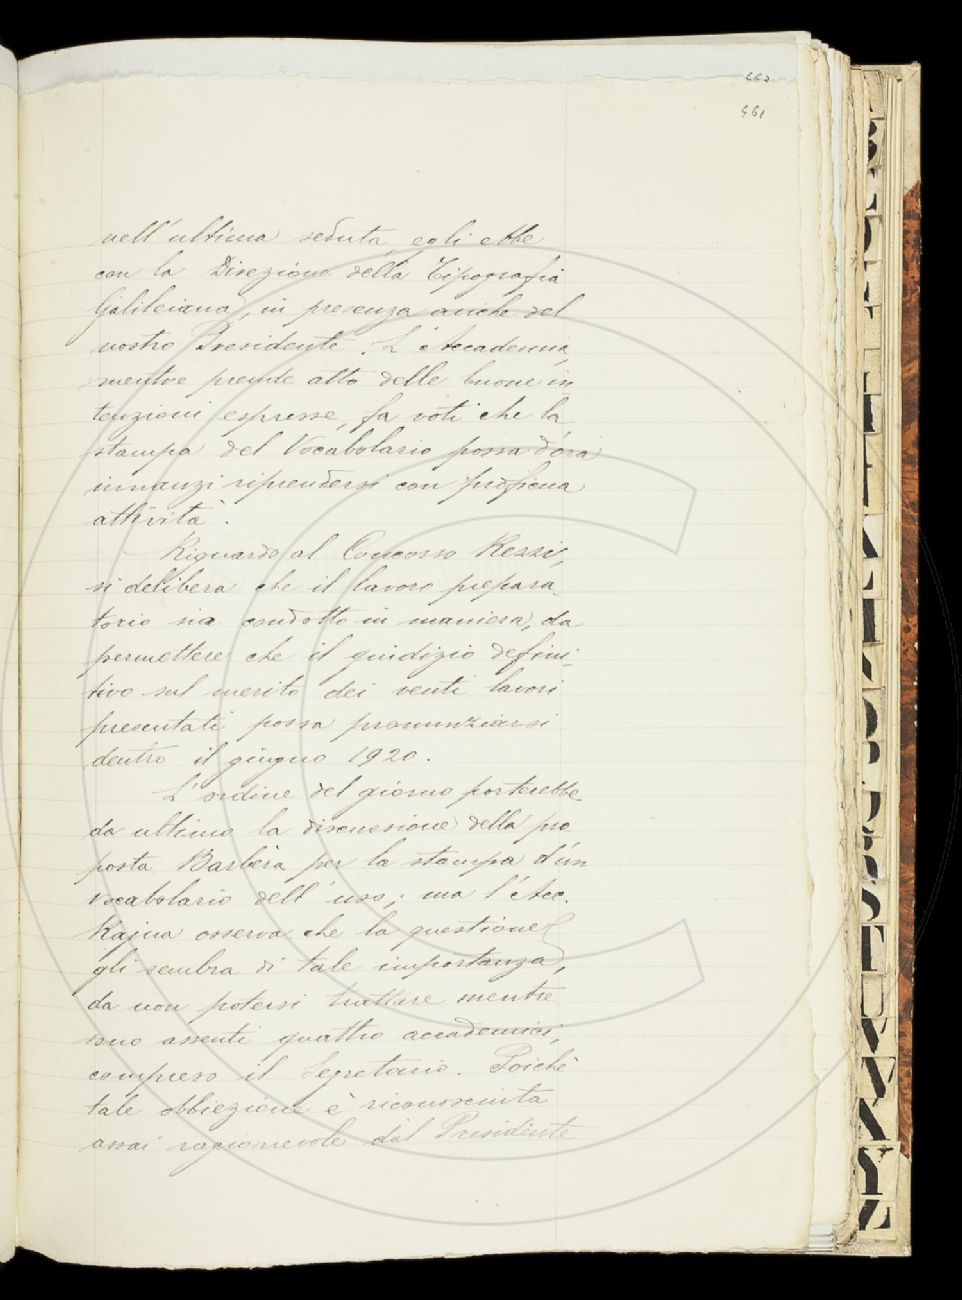 662
661
nell'ultima seduta, egli ebbe
con la Direzione della Tipografia
Galileiana, in presenza anche del
nostro Presidente. L'Accademia,
mentre prende atto delle buone in
tenzioni espresse, fa voti che la
stampa del Vocabolario possa d'ora
innanzi riprendersi con proficua
attività.
Riguardo al Concorso Rezzi,
si delibera che il lavoro prepara
torio sia condotto in maniera, da
permettere che il giudizio defini,
tivo sul merito dei venti lavori
presentati possa pronunziarsi
dentro il giugno 1920.
L'ordine del giorno porterebbe
da ultimo la discussione della pro
posta Barbèra per la stampa d'un
vocabolario dell'uso; ma l'Acc.
Rajna osserva che la questione
gli sembra di tale importanza,
da non potersi trattare mentre
sono assenti quattro accademici,
compreso il Segretario. Poichè
tale obbiezione è riconosciuta
assai ragionevole dal Presidente